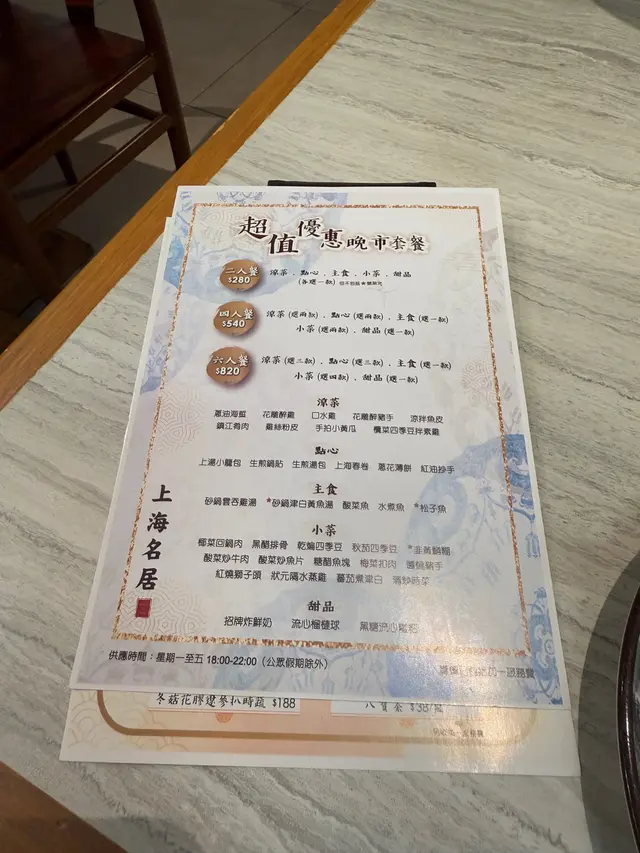 超值優惠晚市套餐
二人餐 $280
涼菜、點心、主食、小菜、甜品
(各選一款)
四人餐 $540
涼菜(選兩款)、點心(選兩款)、主食(選一款)
小菜(選兩款)、甜品(選一款)
六人餐 $820
涼菜(選三款)、點心(選三款)、主食(選一款)
小菜(選四款)、甜品(選一款)
涼菜
蔥油海蜇 花雕醉雞 口水雞 花雕醉豬手 涼拌魚皮
鎮江肴肉 雞絲粉皮 手拍小黃瓜 欖菜四季豆拌素雞
點心
上湯小籠包 生煎鍋貼 生煎湯包 上海春卷 蔥花薄餅 紅油抄手
主食
砂鍋雲吞雞湯 *砂鍋津白黃魚湯 酸菜魚 水煮魚 *松子魚
小菜
椰菜回鍋肉 黑醋排骨 乾煸四季豆 秋茄四季豆 *韭黃鱔糊
酸菜炒牛肉 酸菜炒魚片 糖醋魚塊 梅菜扣肉
紅燒獅子頭 狀元隔水蒸雞 蕃茄煮津白 清炒時菜
甜品
招牌炸鮮奶 流心榴槤球
上海名居
供應時間：星期一至五 18:00-22:00（公眾假期除外）
冬菇花膠遼參扒時蔬 $188